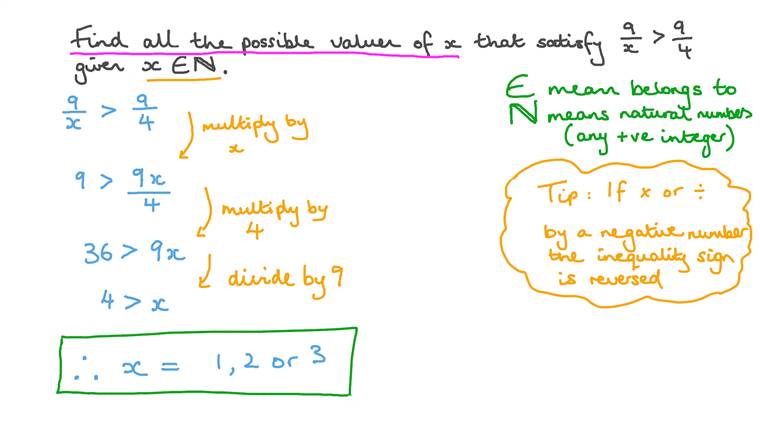 Find all the possible values of x that satisfy 9/x > 9/4
given x ∈ ℕ.
9/x > 9/4
multiply by
x
9 > 9x/4
multiply by
4
36 > 9x
divide by 9
4 > x
∴ x = 1, 2 or 3
∈ mean belongs to
ℕ means natural number
(any +ve integer)
Tip: If × or ÷
by a negative number
the inequality sign
is reversed